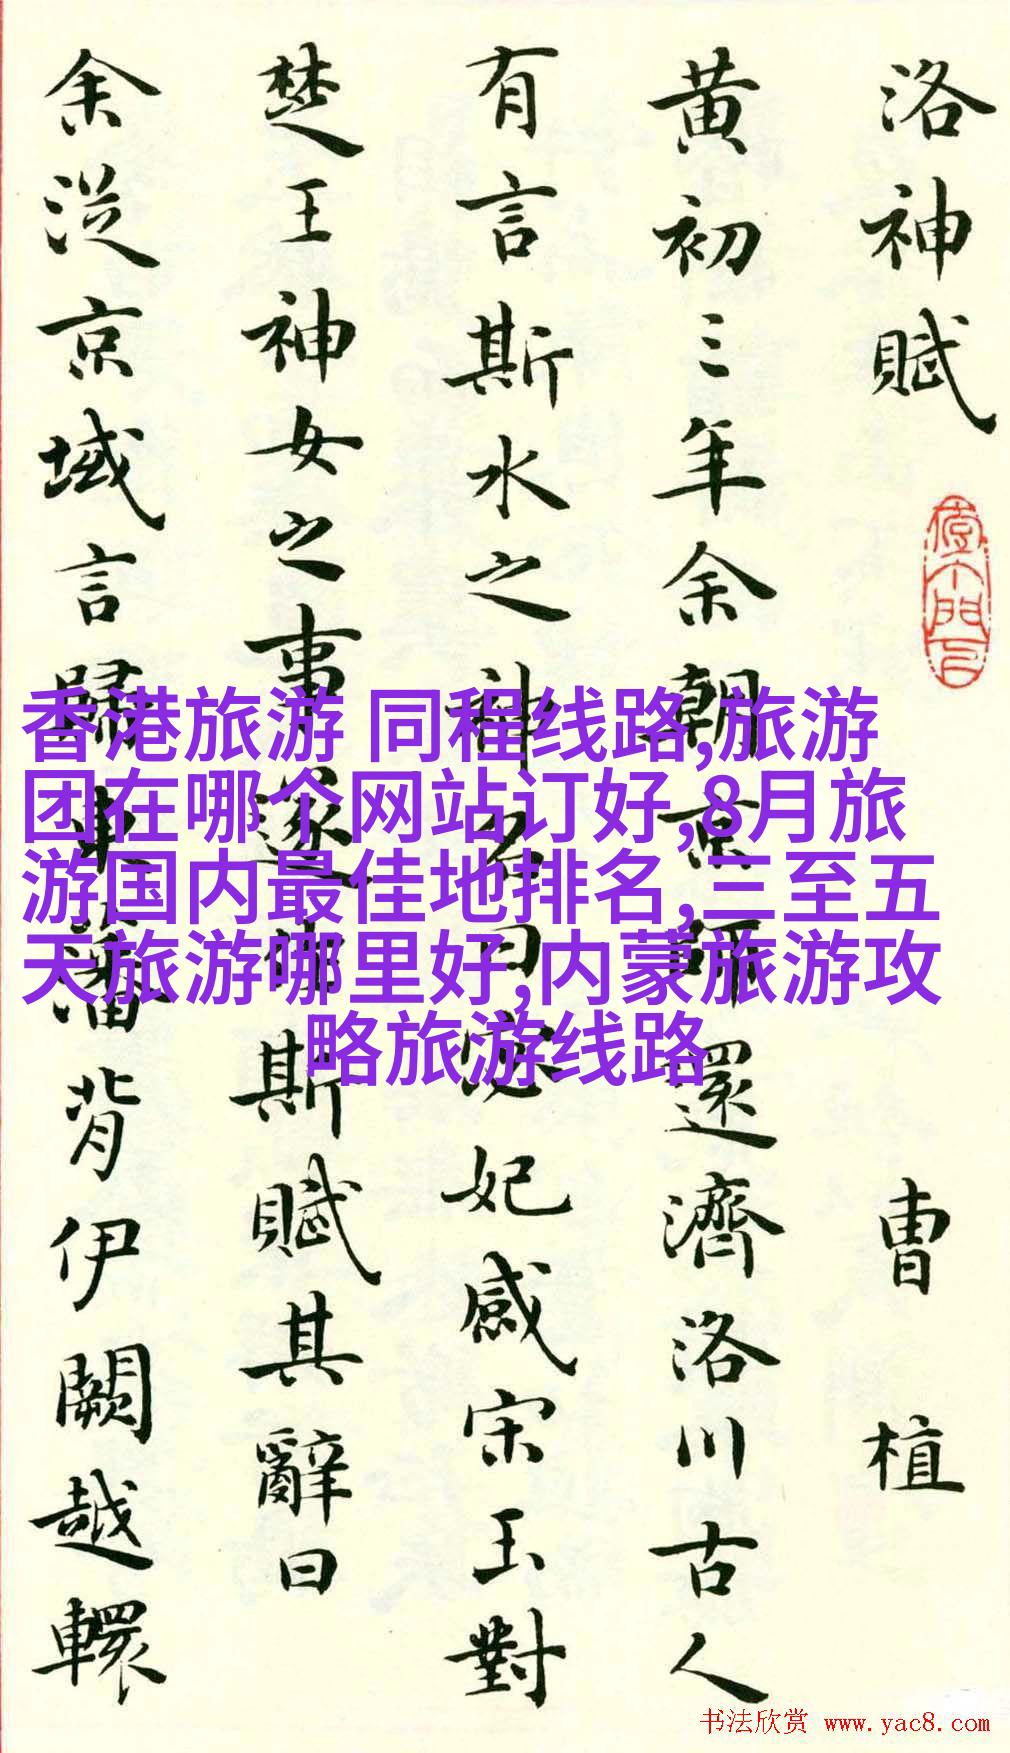 洛神賦
曹植
黄初三年余朝京師還濟洛川古人
有言斯水之神名曰宓妃感宋玉對
楚王神女之事遂作斯賦其辭曰
余從京域言歸東藩背伊闕越轘
香港旅游 同程线路,旅游
团在哪个网站订好,8月旅
游国内最佳地排名,三至五
天旅游哪里好,内蒙旅游攻
略旅游线路
书法欣赏 www.yac8.com